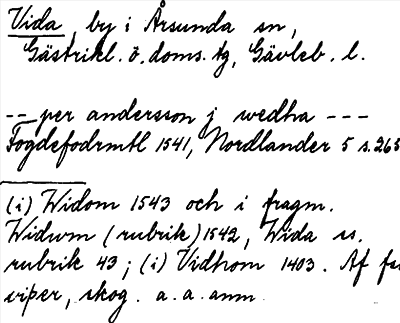 Vida, by i Årsunda sn,
Gästrikl. ö. doms. tg, Gävleb. l.
-- per andersson j wedha ---
Fogdefodrmtl 1541, Nordlander 5 s. 265
(i) Widom 1543 och i fragm.
Widwm (rubrik) 1542, Wida ss.
rubrik 43; (i) Vidhom 1403. Af
viper, skog. a. a. anm.